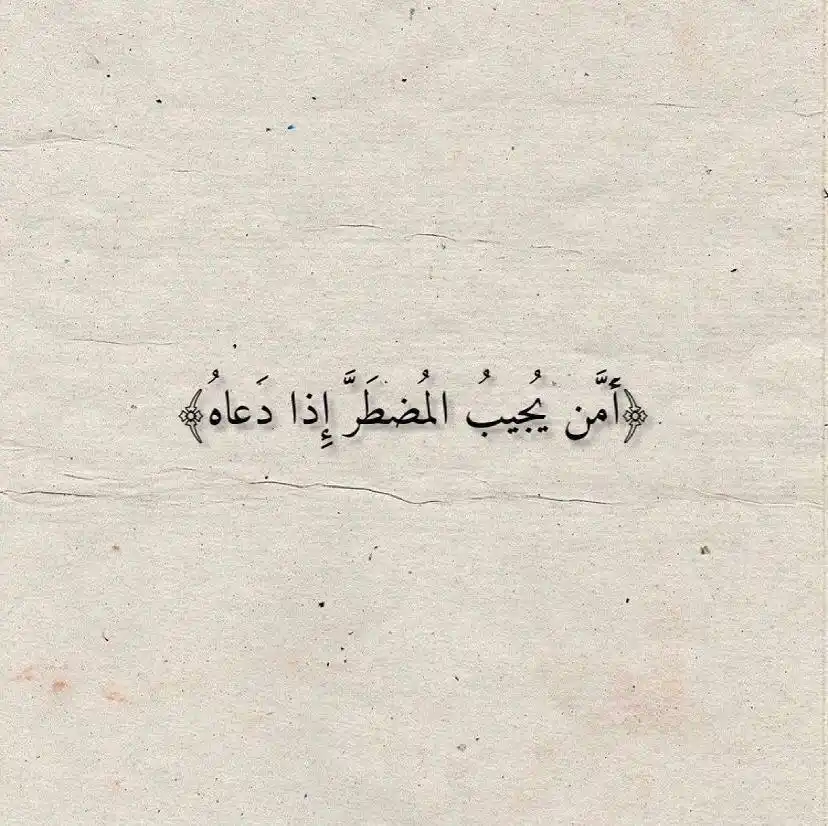 ﴿أَمَّن يُجيبُ المُضطَرَّ إِذا دَعاهُ﴾